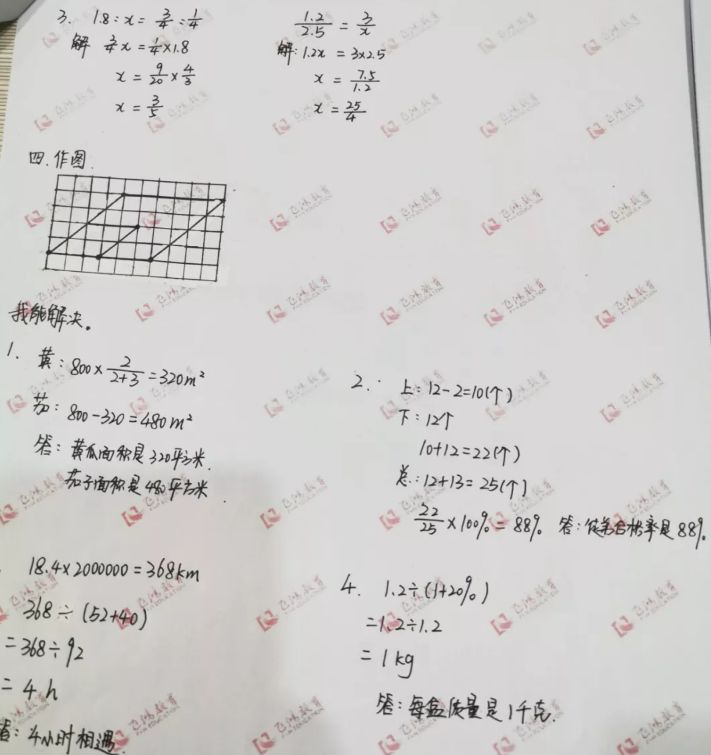 3. 1.8:x=3/4:1/4
解 3/4x=1/4×1.8
x=9/20×4/3
x=3/5
1.2/2.5=3/x
解:1.2x=3×2.5
x=7.5/1.2
x=25/4
四.作图.
我能解决。
1. 黄:800×2/2+3=320m²
茄:800-320=480m²
答:黄瓜面积是320平方米.
茄子面积是480平方米.
2. 上:12-2=10(个)
下:12个
10+12=22(个)
总:12+13=25(个)
22/25×100%=88% 答:合格率是88%.
18.4×2000000=368km
368÷(52+40)
=368÷92
=4h
答:4小时相遇
4. 1.2÷(1+20%)
=1.2÷1.2
=1kg
答:每盒质量是1千克.